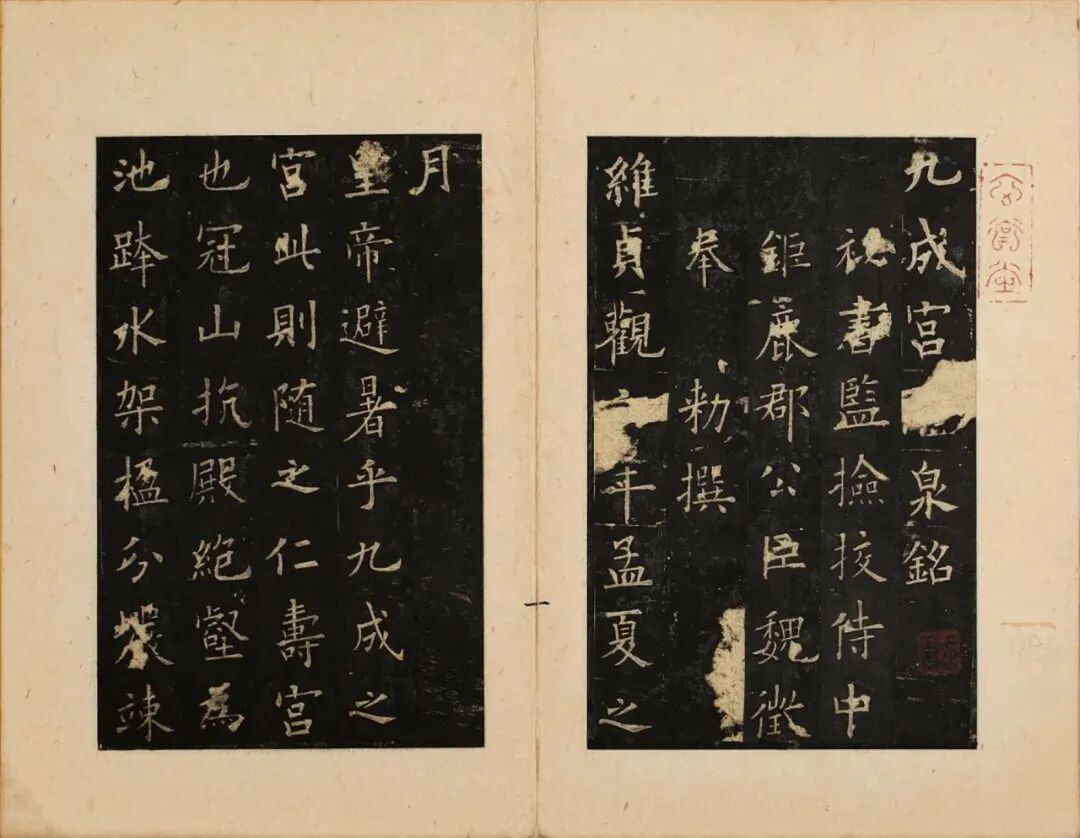 九成宮泉銘
秘書監撿挍侍中
鉅鹿郡公臣魏徵
奉
勑撰
維貞觀六年孟夏之
月
皇帝避暑乎九成之
宮此則随之仁壽宮
也冠山抗殿絕壑為
池跨水架楹分巖竦